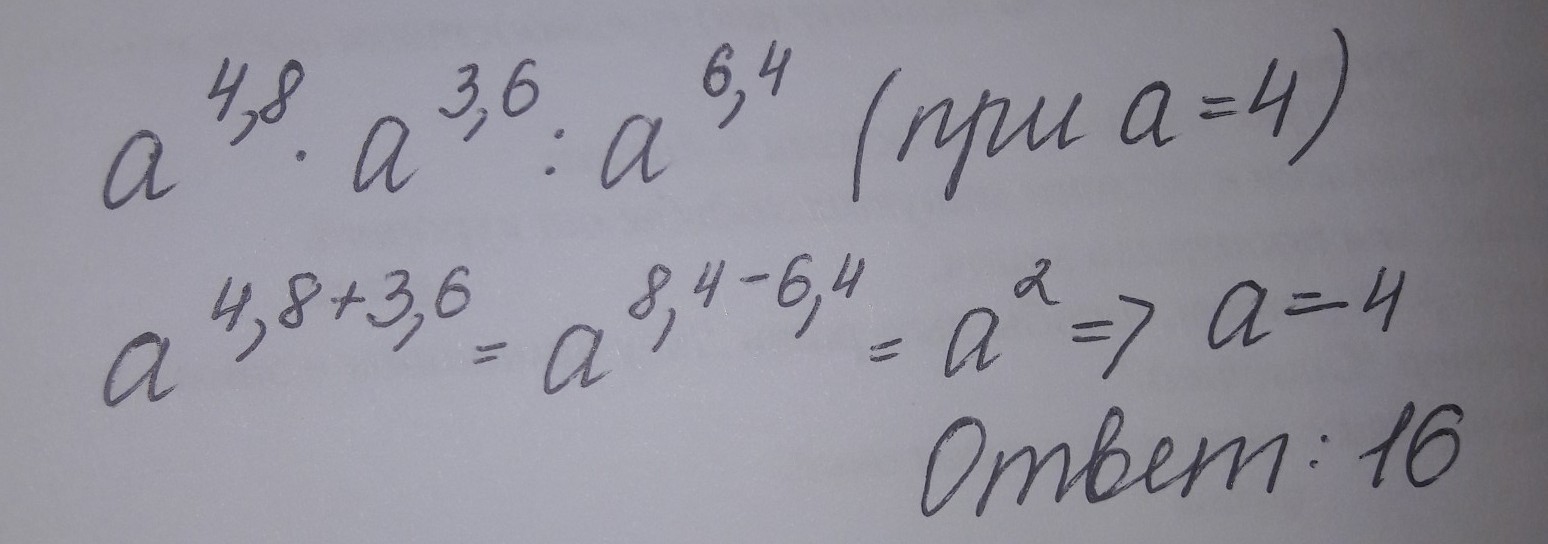 a^4,8 · a^3,6 : a^6,4 (при a=4)
a^4,8+3,6 = a^8,4-6,4 = a^2 => a=4
Ответ: 16